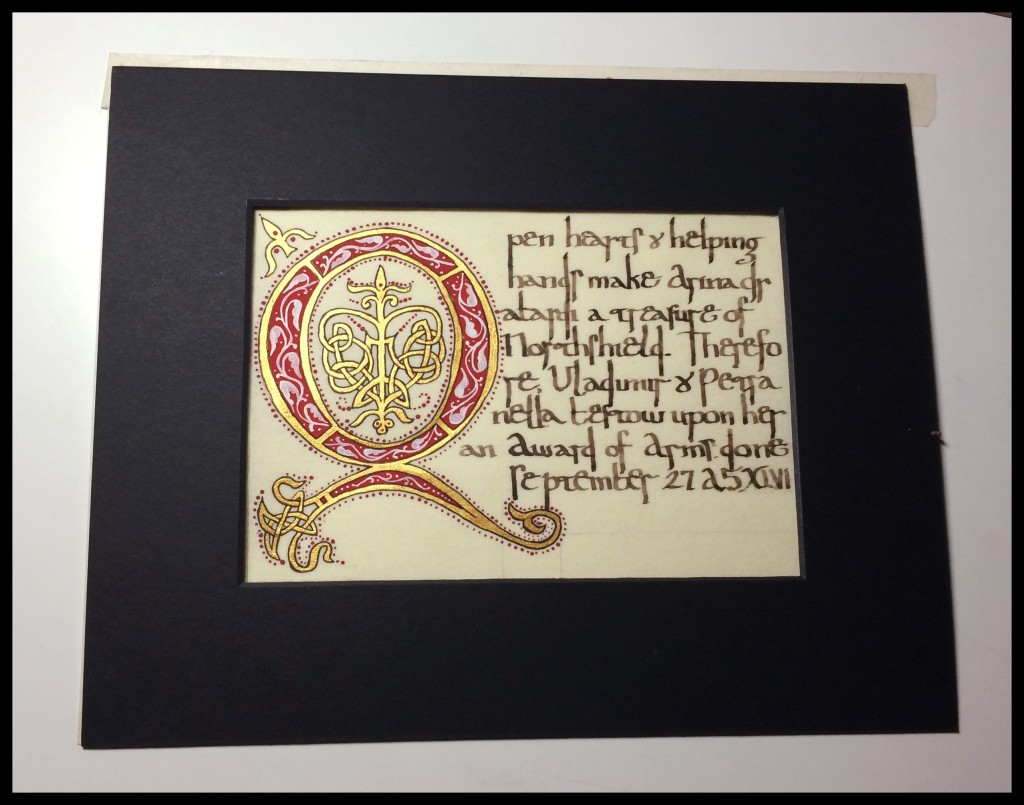 Qpen hearts & helping
hands make
a treasure of
Northshield. Therefo
re, Vladimir & Petra
nella bestow upon her
an Award of Arms. done
September 27 AS XLVI